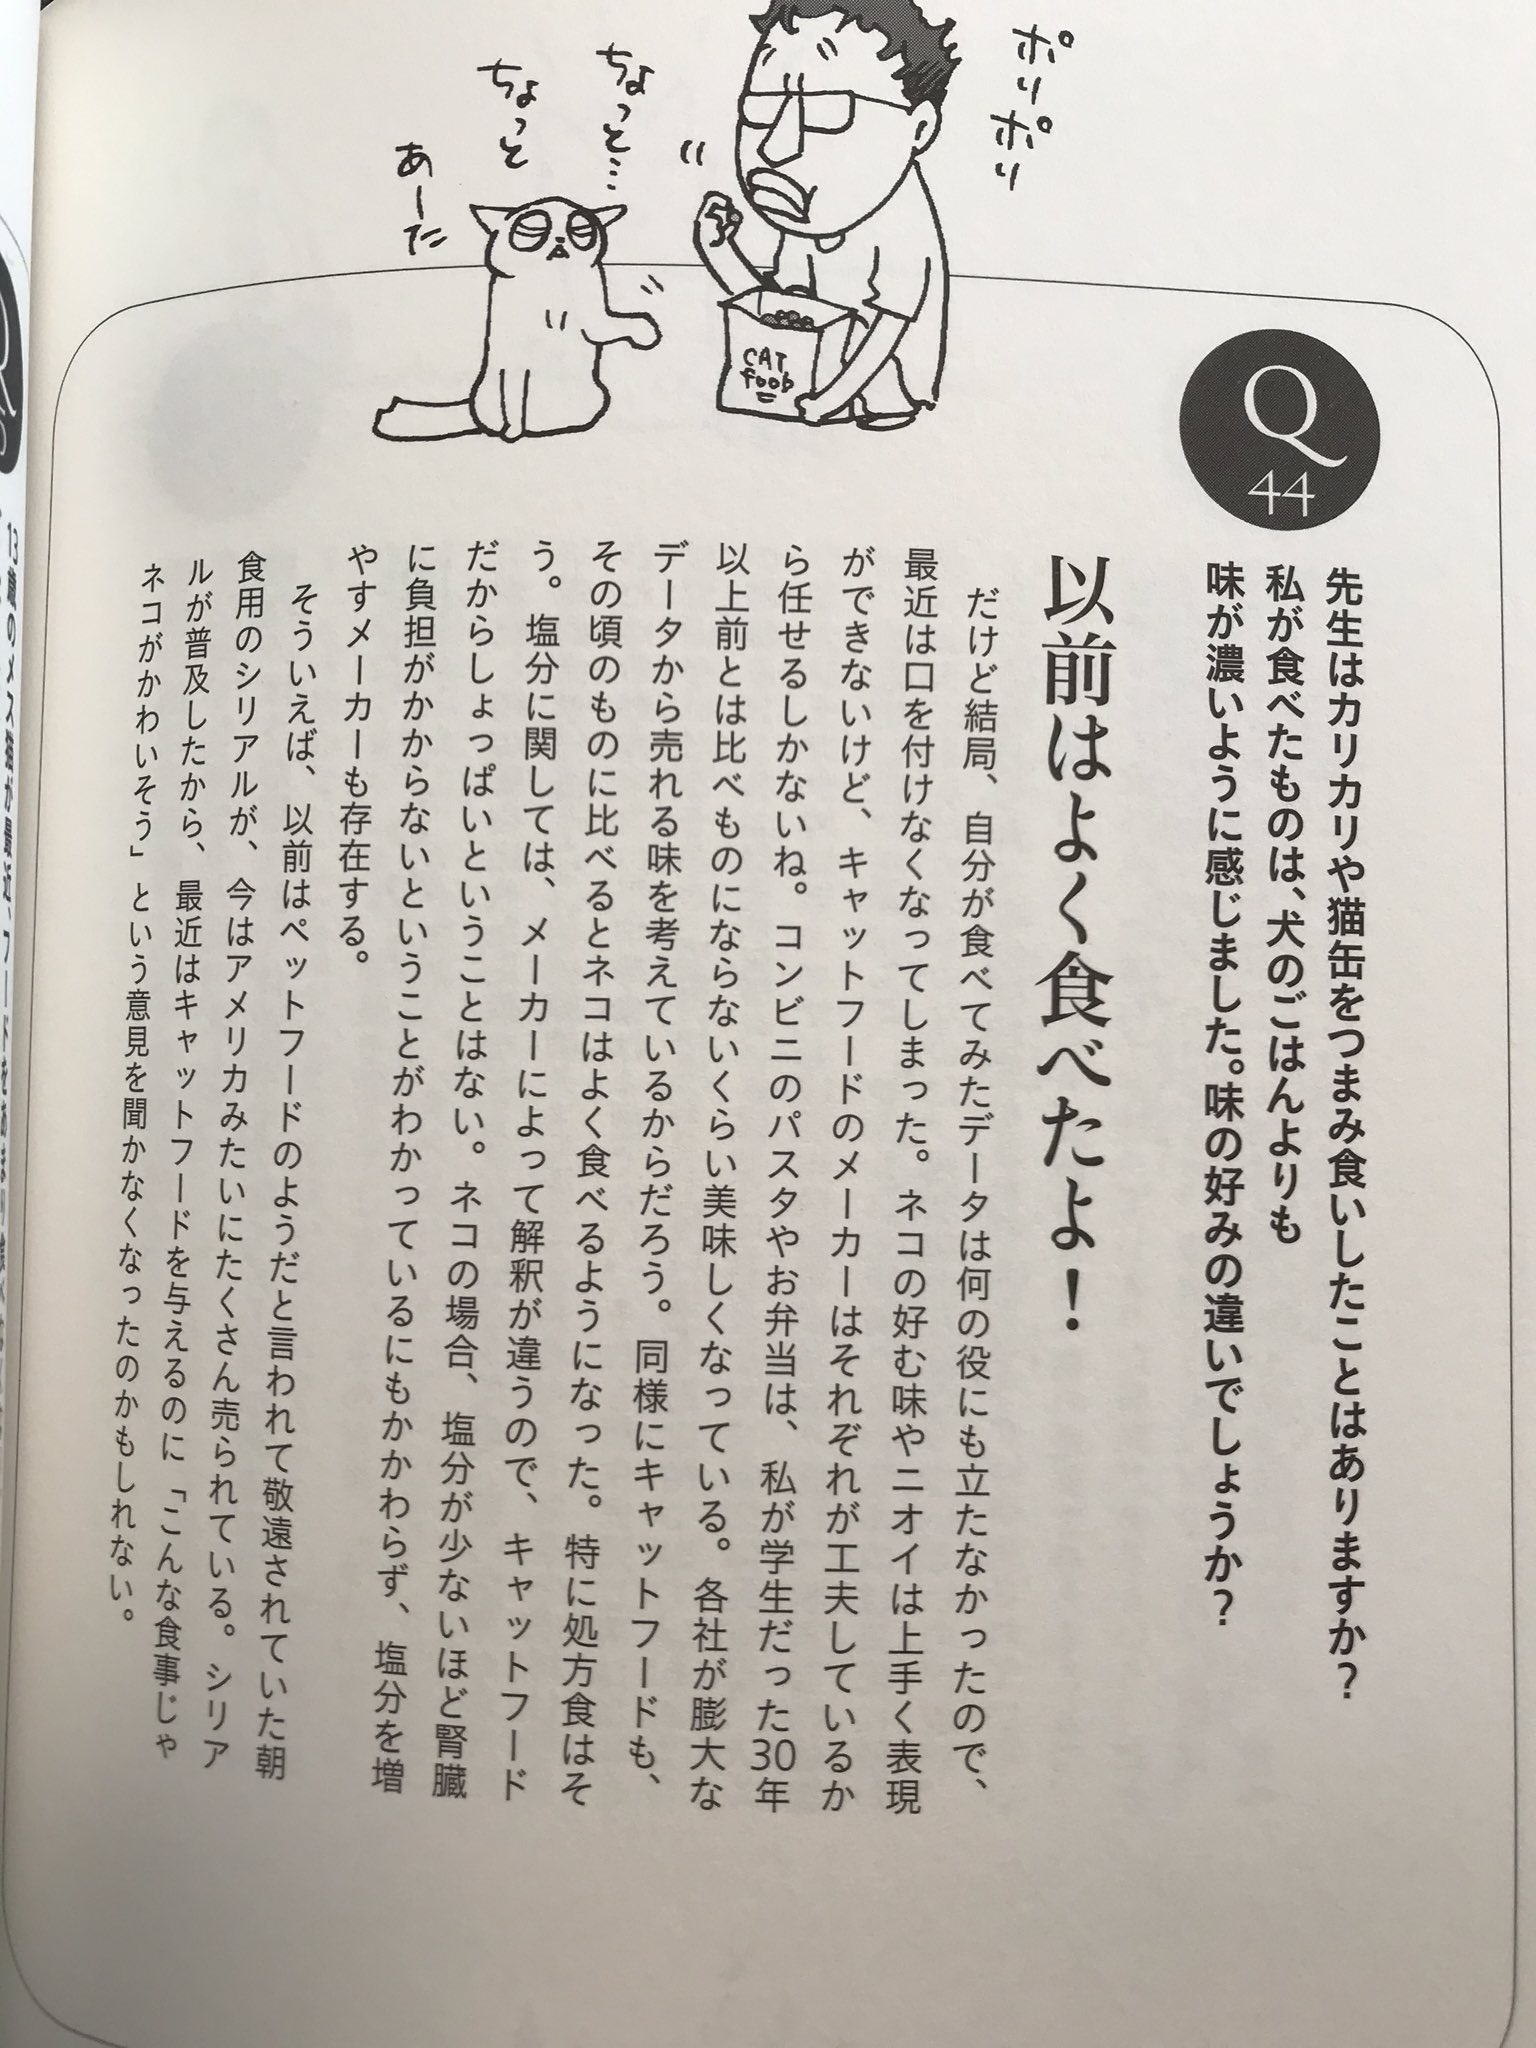 ポリポリ
ちょっと…
ちょっと
あーた
CAT
FOOD
Q
44
先生はカリカリや猫缶をつまみ食いしたことはありますか?
私が食べたものは、犬のごはんよりも
味が濃いように感じました。味の好みの違いでしょうか?
以前はよく食べたよ!
だけど結局、自分が食べてみたデータは何の役にも立たなかったので、
最近は口を付けなくなってしまった。ネコの好む味やニオイは上手く表現
ができないけど、キャットフードのメーカーはそれぞれが工夫しているか
ら任せるしかないね。コンビニのパスタやお弁当は、私が学生だった30年
以上前とは比べものにならないくらい美味しくなっている。各社が膨大な
データから売れる味を考えているからだろう。同様にキャットフードも、
その頃のものに比べるとネコはよく食べるようになった。特に処方食はそ
う。塩分に関しては、メーカーによって解釈が違うので、キャットフード
だからしょっぱいということはない。ネコの場合、塩分が少ないほど腎臓
に負担がかからないということがわかっているにもかかわらず、塩分を増
やすメーカーも存在する。
そういえば、以前はペットフードのようだと言われて敬遠されていた朝
食用のシリアルが、今はアメリカみたいにたくさん売られている。シリア
ルが普及したから、最近はキャットフードを与えるのに「こんな食事じゃ
ネコがかわいそう」という意見を聞かなくなったのかもしれない。
13歳のメス猫が最近、フードをあまり